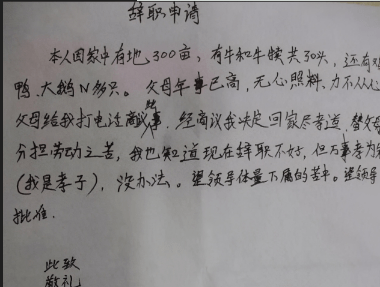 辞职申请
本人因家中有地300亩，有牛和牛犊共30头，还有鸡
鸭、大鹅N多只。父母年事已高，无心照料，力不从心
父母给我打电话商议此事，经商议我决定回家尽孝道，替父母
分担劳动之苦，我也知道现在辞职不好，但万事孝为先
(我是孝子)，没办法。望领导体量下属的苦中。望领导
批准.
此致
敬礼